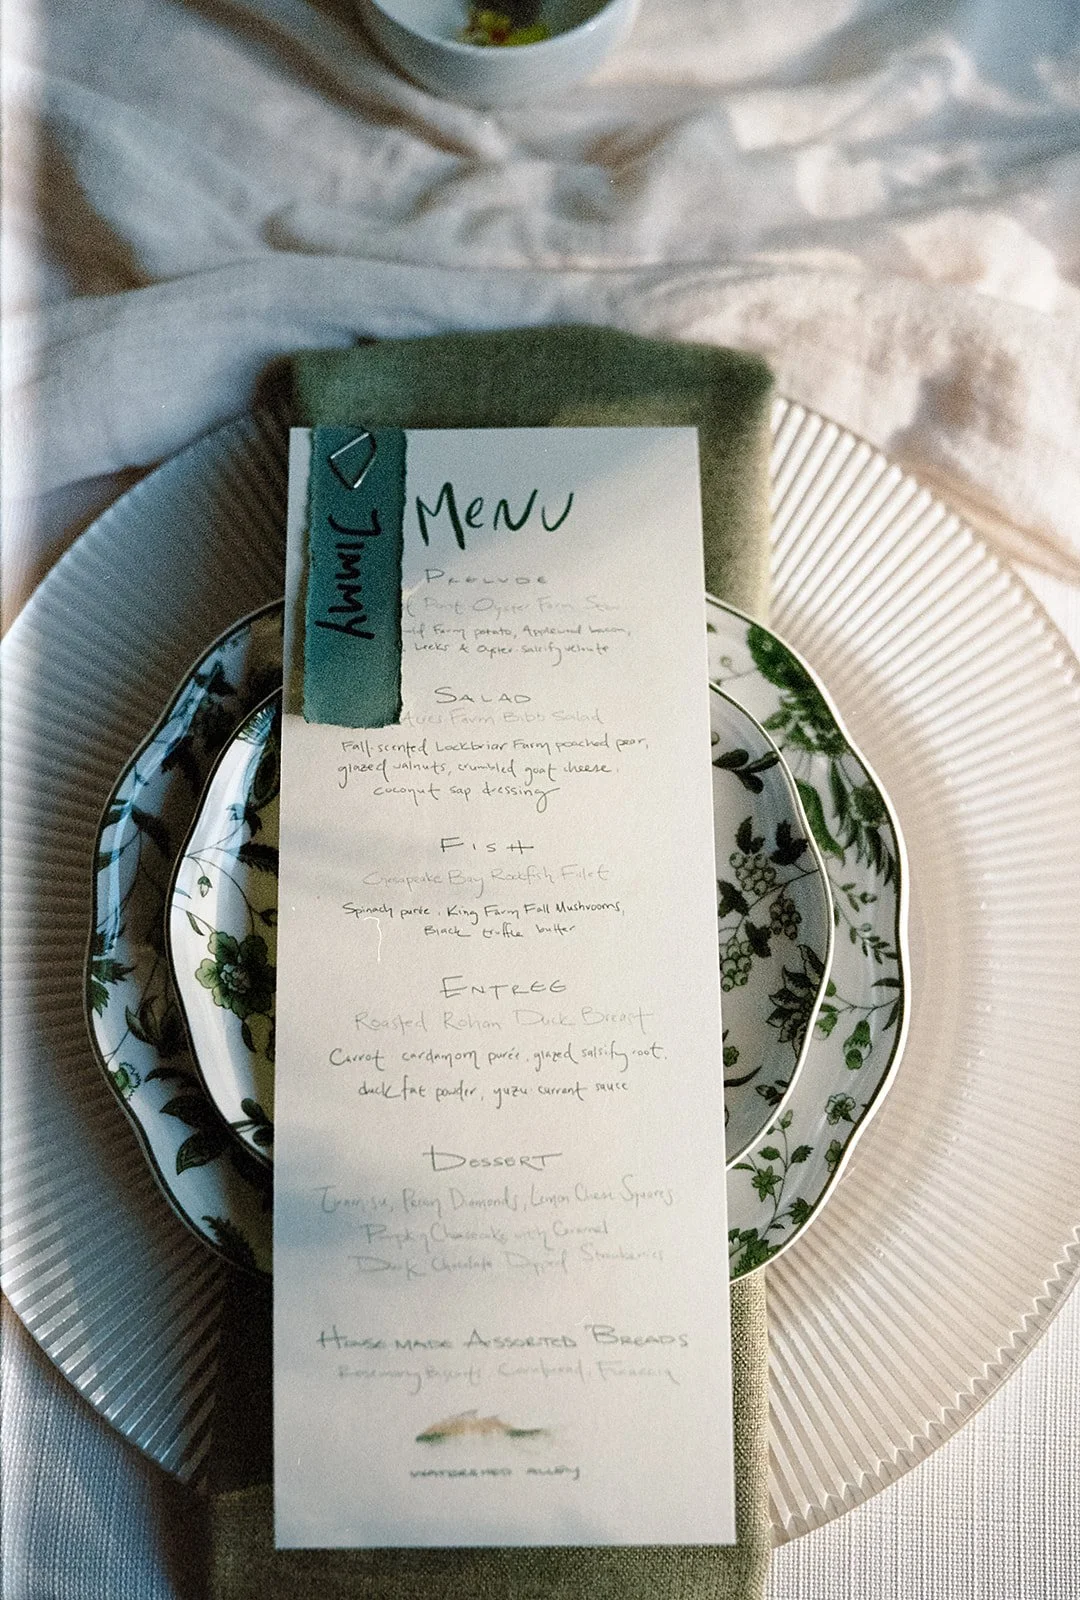 Jimmy
Menu
Prelude
Point Oyster Farm
Farm potato, Applewood bacon,
Leeks & Oyster-salsify veloute
Salad
Acres Farm Bibb Salad
Fall-scented Lockbriar Farm poached pear,
glazed walnuts, crumbled goat cheese,
coconut sap dressing
Fish
Chesapeake Bay Rockfish Fillet
Spinach purée, King Farm Fall Mushrooms,
Black truffle butter
Entree
Roasted Rohan Duck Breast
Carrot cardamom purée, glazed salsify root,
duck fat powder, yuzu-currant sauce
Dessert
Tiramisu, Pecan Diamonds, Lemon Chess Squares
Cheesecake with Caramel
Dark Chocolate Dipped Strawberries
House-made Assorted Breads
Rosemary Biscuits, Cornbread, Focaccia
Watershed Alley